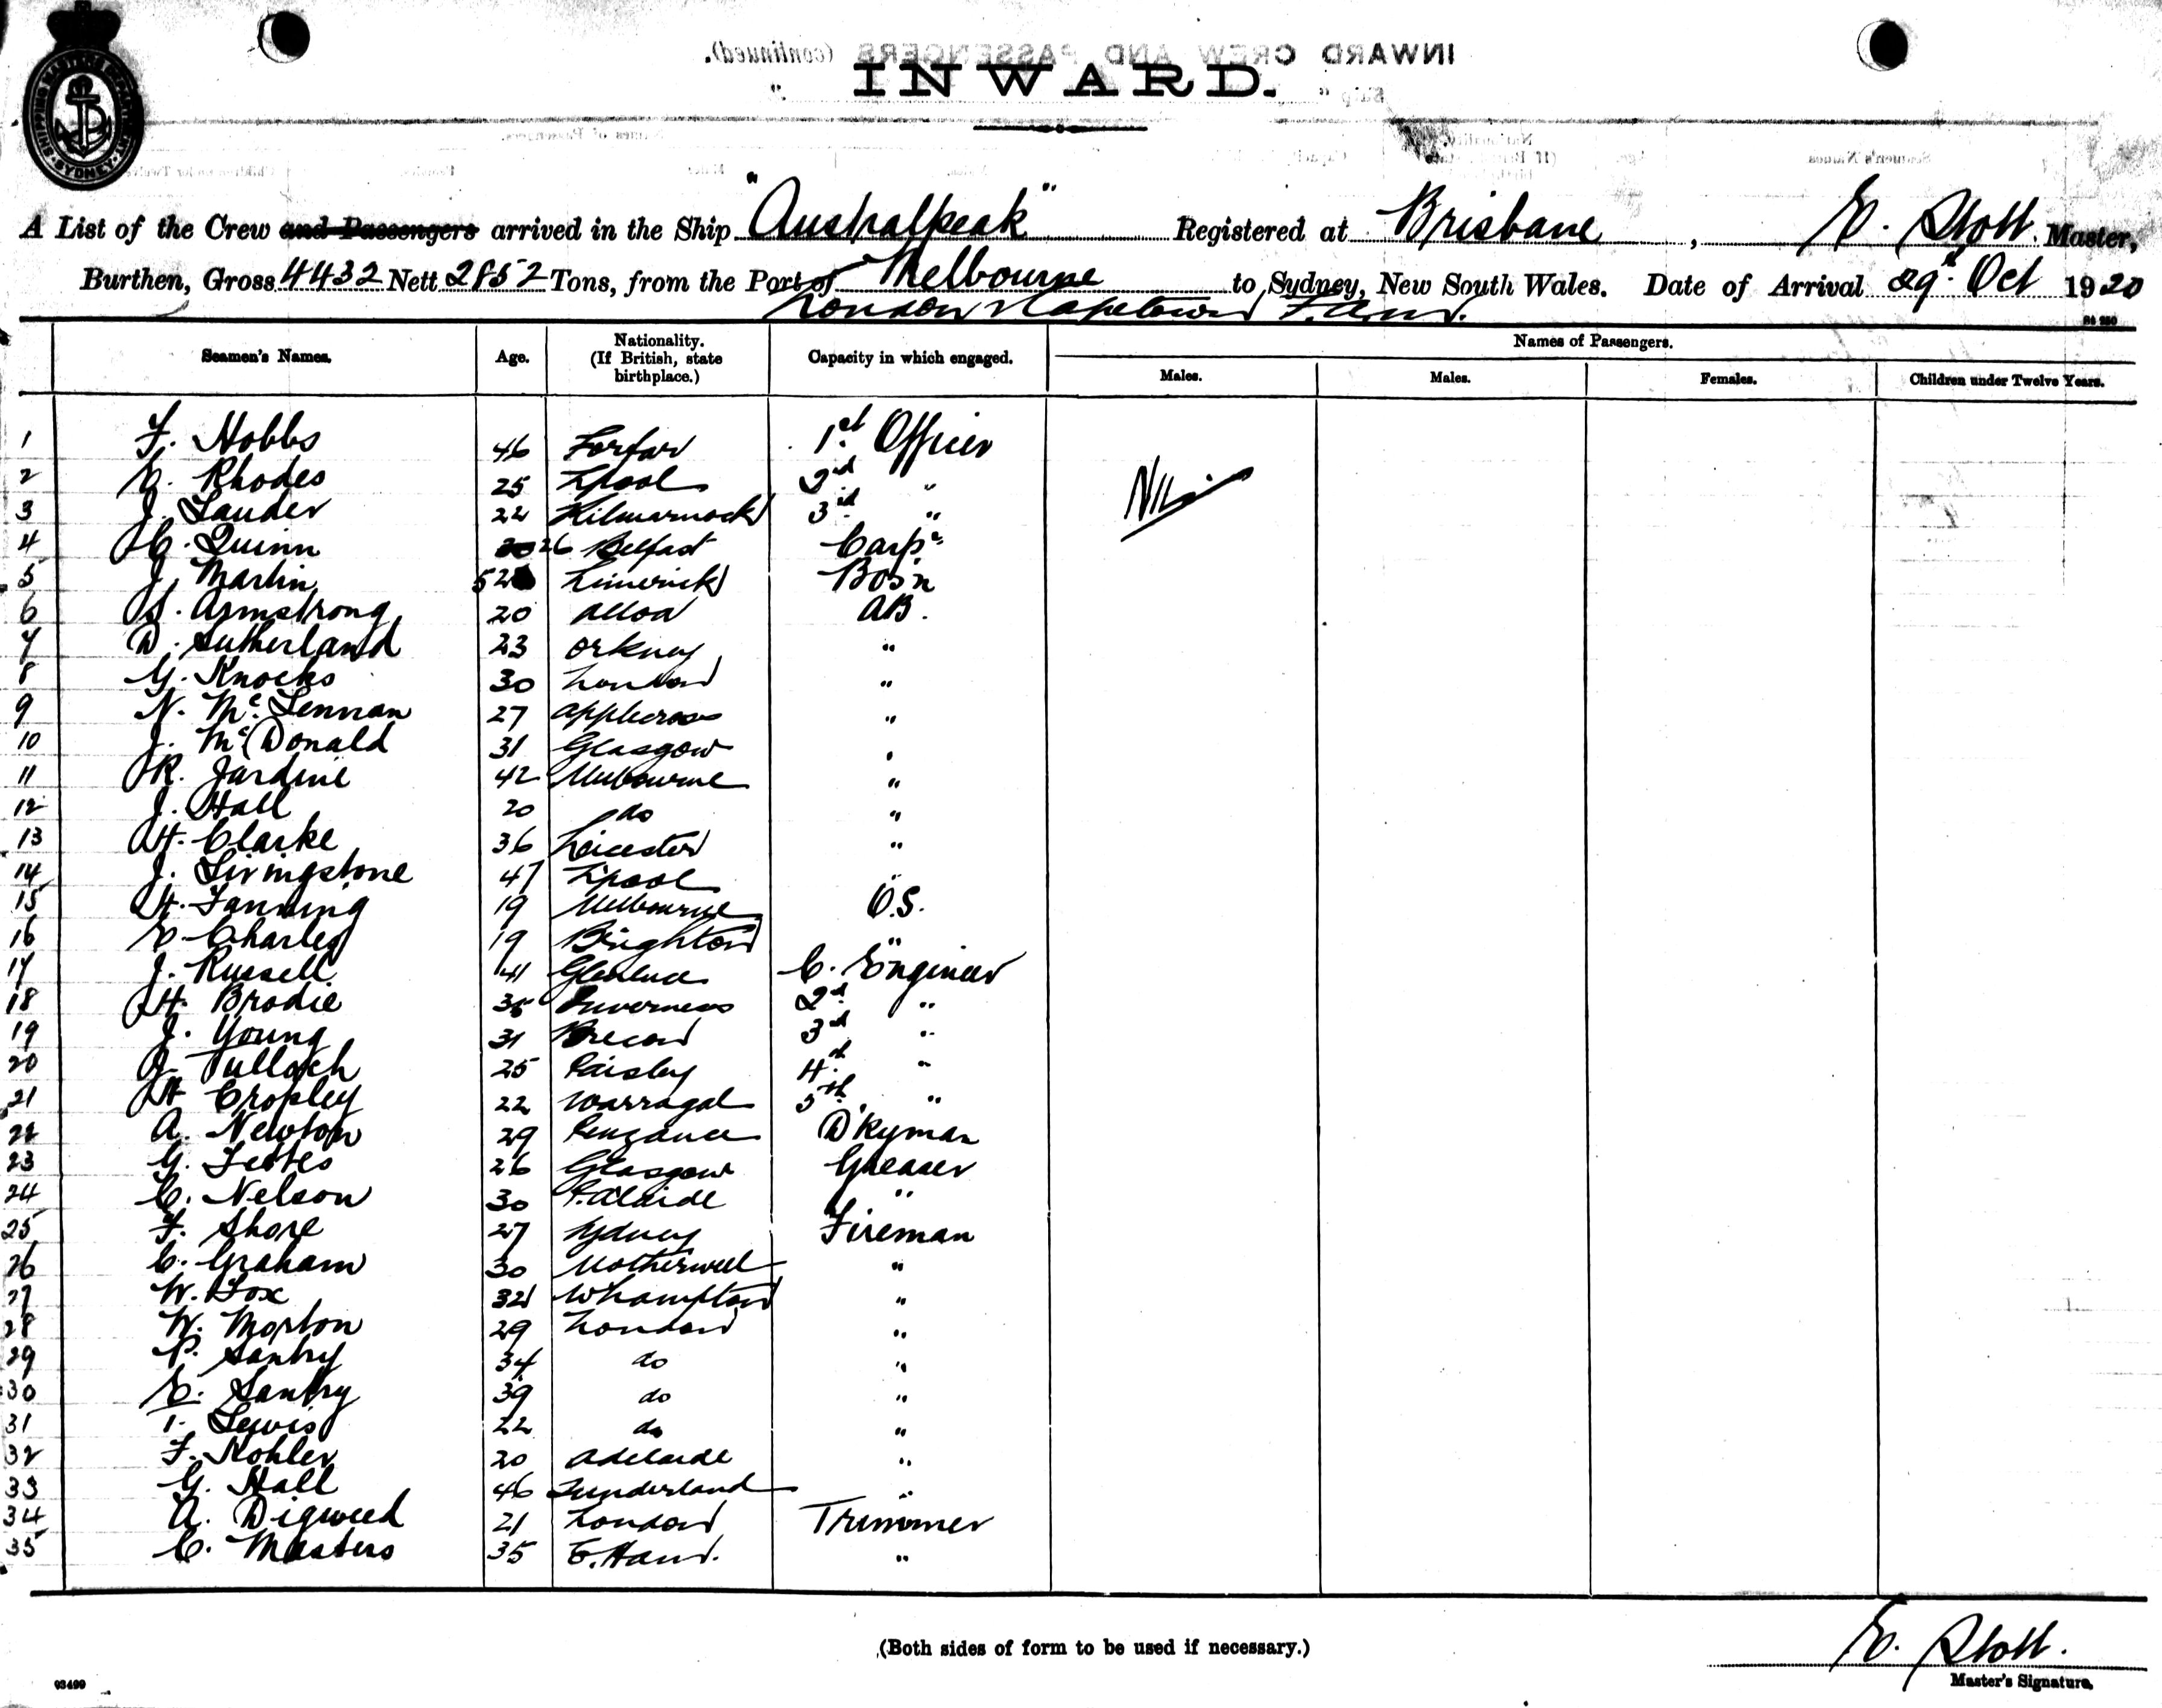 INWARD.
A List of the Crew and Passengers arrived in the Ship "Australpeak" Registered at Brisbane, E. Stott. Master,
Burthen, Gross 4432 Nett 2852 Tons, from the Port of Melbourne to Sydney, New South Wales. Date of Arrival 29th Oct 1920
London & Capetown
Seamen's Names. Age. Nationality. (If British, state birthplace.) Capacity in which engaged. Names of Passengers.
Males. Males. Females. Children under Twelve Years.
1 F. Hobbs 46 Forfar 1st Officer
2 E. Rhodes 25 L'pool 2nd " Nil
3 J. Lauder 22 Kilmarnock 3rd "
4 C. Quinn 26 Belfast Carpr
5 J. Martin 52 Limerick Bos'n
6 S. Armstrong 20 Alloa AB.
7 D. Sutherland 23 Orkney "
8 G. Knocks 30 London "
9 N. McLennan 27 Applecross "
10 J. McDonald 31 Glasgow "
11 R. Jardine 42 Melbourne "
12 J. Hall 20 do "
13 H. Clarke 36 Leicester "
14 J. Livingstone 47 L'pool "
15 H. Fanning 19 Melbourne O.S.
16 E. Charley 19 Brighton "
17 J. Russell 41 Glenluce C. Engineer
18 H. Brodie 35 Inverness 2nd "
19 J. Young 31 Brecon 3rd "
20 J. Tulloch 25 Paisley 4th "
21 H. Cropley 22 Warragal 5th "
22 A. Newton 29 Penzance D'kyman
23 G. Fettes 26 Glasgow Greaser
24 C. Nelson 30 P. Adelaide "
25 F. Shore 27 Sydney Fireman
26 C. Graham 30 Motherwell "
27 W. Fox 32 W'hampton "
28 W. Morton 29 London "
29 P. Santry 34 do "
30 E. Santry 39 do "
31 T. Lewis 22 do "
32 F. Kohler 20 Adelaide "
33 G. Hall 46 Sunderland "
34 A. Digweed 21 London Trimmer
35 C. Masters 35 E. Ham. "
(Both sides of form to be used if necessary.)
E. Stott.
Master's Signature.
93499